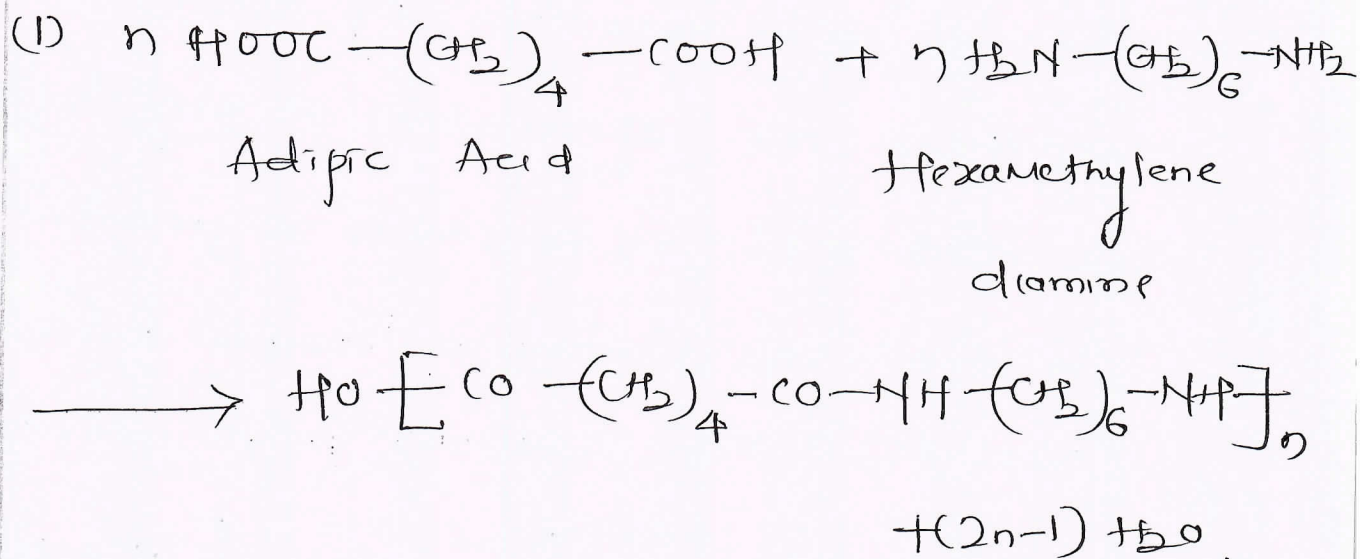 (1) n HOOC-(CH₂)₄-COOH + n H₂N-(CH₂)₆-NH₂
Adipic Acid Hexamethylene
diamine
⟶ HO-[CO-(CH₂)₄-CO-NH-(CH₂)₆-NH-]ₙ
+(2n-1) H₂O